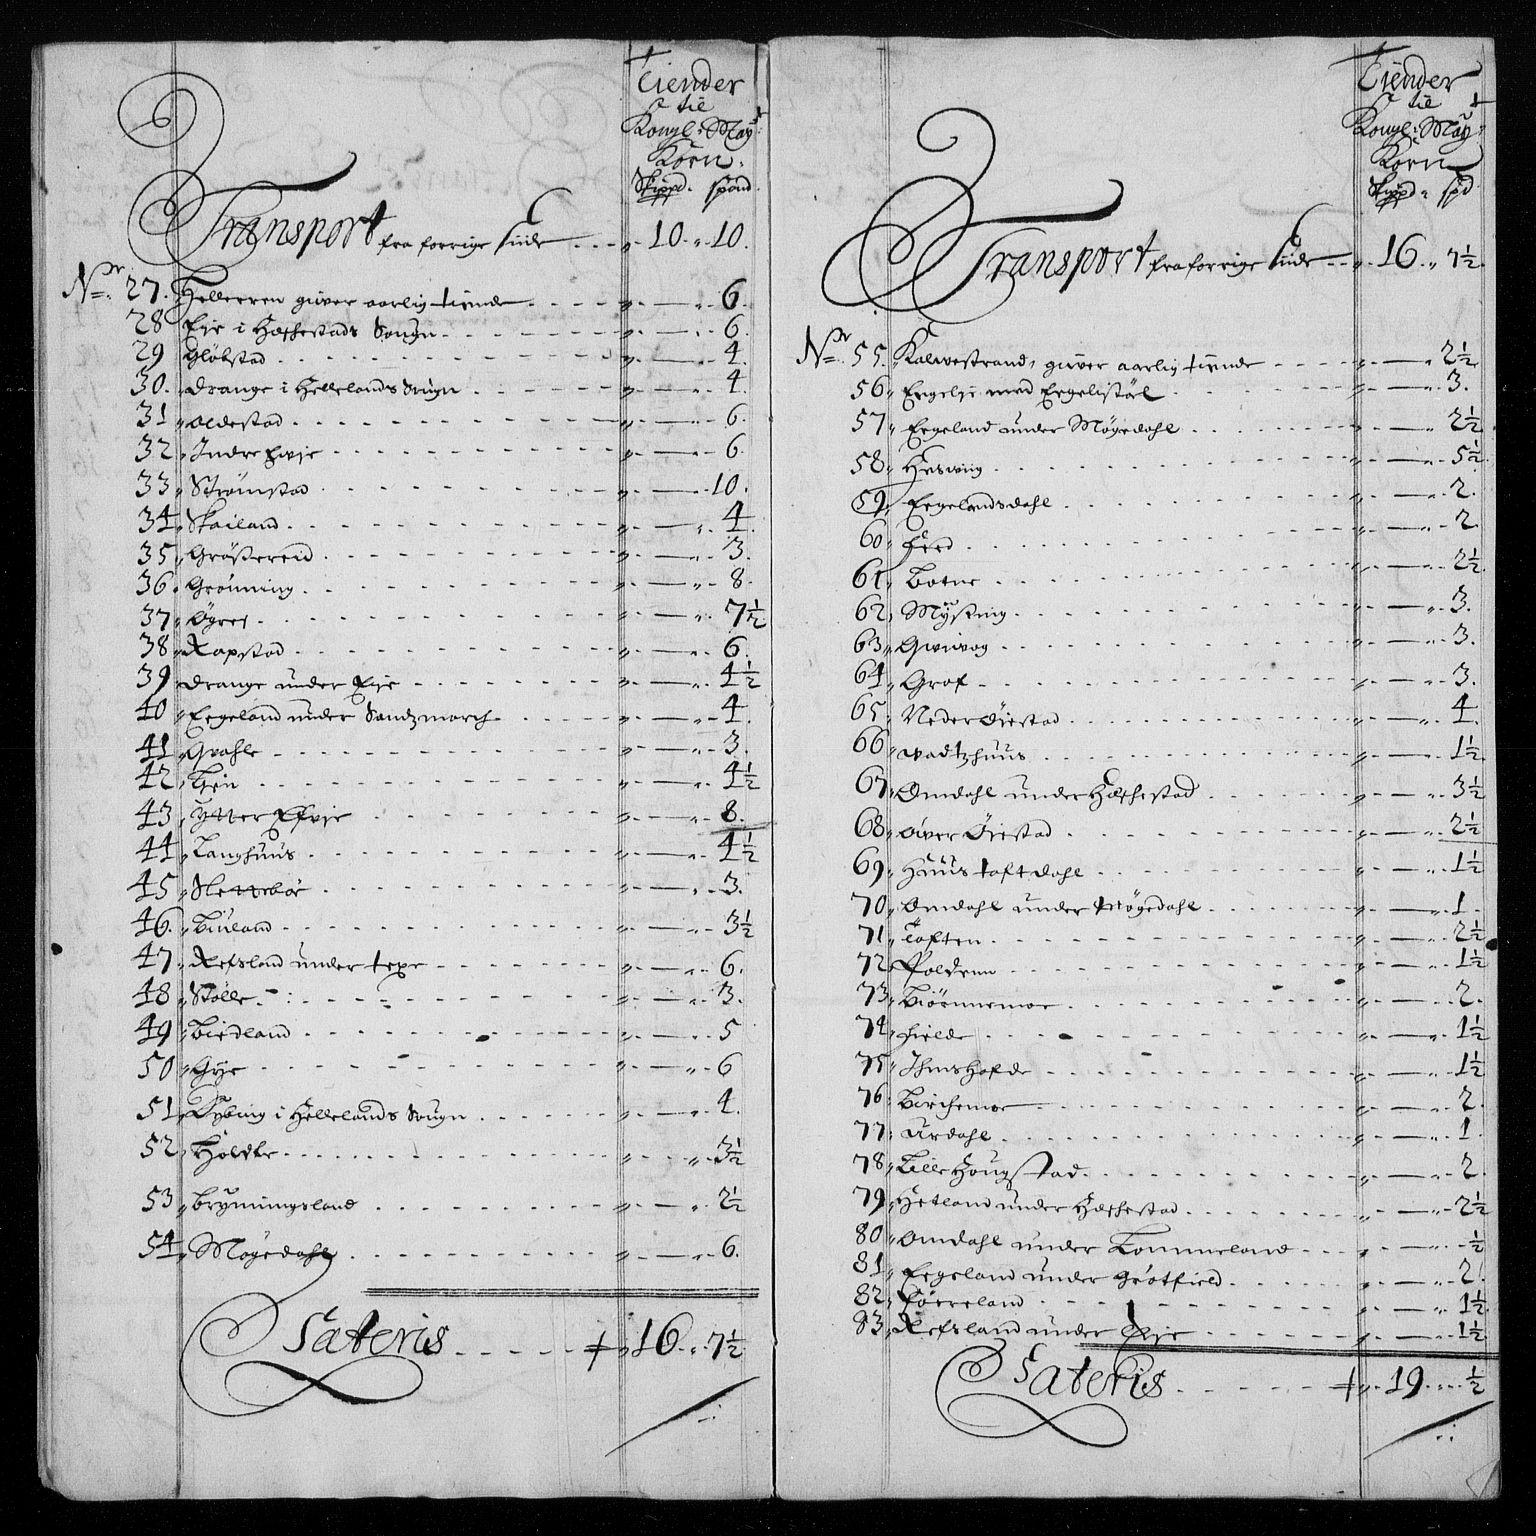 Tiender
til
Kongl: May:t
Korn.
Skippd. spand.
Transport fra forrige siide 10. 10.
No. 27. Helleeren giiver aarlig tiende 6.
28 Eje i Hæskestads Sougn 6.
29 Gløbstad 4.
30. Drange i Hellelands Sougn 4.
31 Oldestad 6.
32 Indre Evje 6.
33 Strømstad 10.
34 Skailand 4.
35 Grøssereid 3.
36 Grønning 8.
37 Øgrei 7½
38 Rapstad 6.
39 Drange under Eje 4½
40 Eegeland under Sandzmarch 4.
41 Qvahle 3.
42 Lien 4½
43 Ytter Efvje 8.
44 Langhuus 4½
45 Slettebøe 3.
46. Biuland 3½
47 Refsland under texe 6.
48 Stølle 3.
49 Birdland 5
50 Gyje 6
51 Nybing i Hellelands Sougn 4.
52 Holdte 3½
53 Brynningsland 2½
54 Møgedahl 6.
Lateris 16. 7½
Tiender
til
Kongl: May:t
Korn
Skippd. spd
Transport fra forrige siide 16. 7½
No. 55. Kalvestrand, giiver aarlig tiende 2½
56 Eegelje med Eegelistøl 3.
57 Eegeland under Møgedahl 2½
58 Hesving 5½
59 Eegelandsdahl 2.
60 Heed 2.
61 Botne 2½
62 Mysing 3.
63 Gvivog 3.
64 Grof 3.
65 Neder Øiestad 4.
66 Vadtzhuus 1½
67 Omdahl under Hæskestad 3½
68 Øiver Øiestad 2½
69 Huustoftdahl 1½
70 Omdahl under Møgedahl 1.
71 Toften 2½
72 Polden 1½
73 Biørnemoe 2.
74 Hielde 1½
75 Thmshofde 1½
76 Birchemoe 2.
77 Urdahl 1.
78 Lille Hougstad 2.
79 Hetland under Hæskestad 2½
80 Omdahl under Lommeland ½
81 Eegeland under Grøtfield 2.
82 Førreland 1½
83 Refsland under Eje 1½
Lateris 19. ½